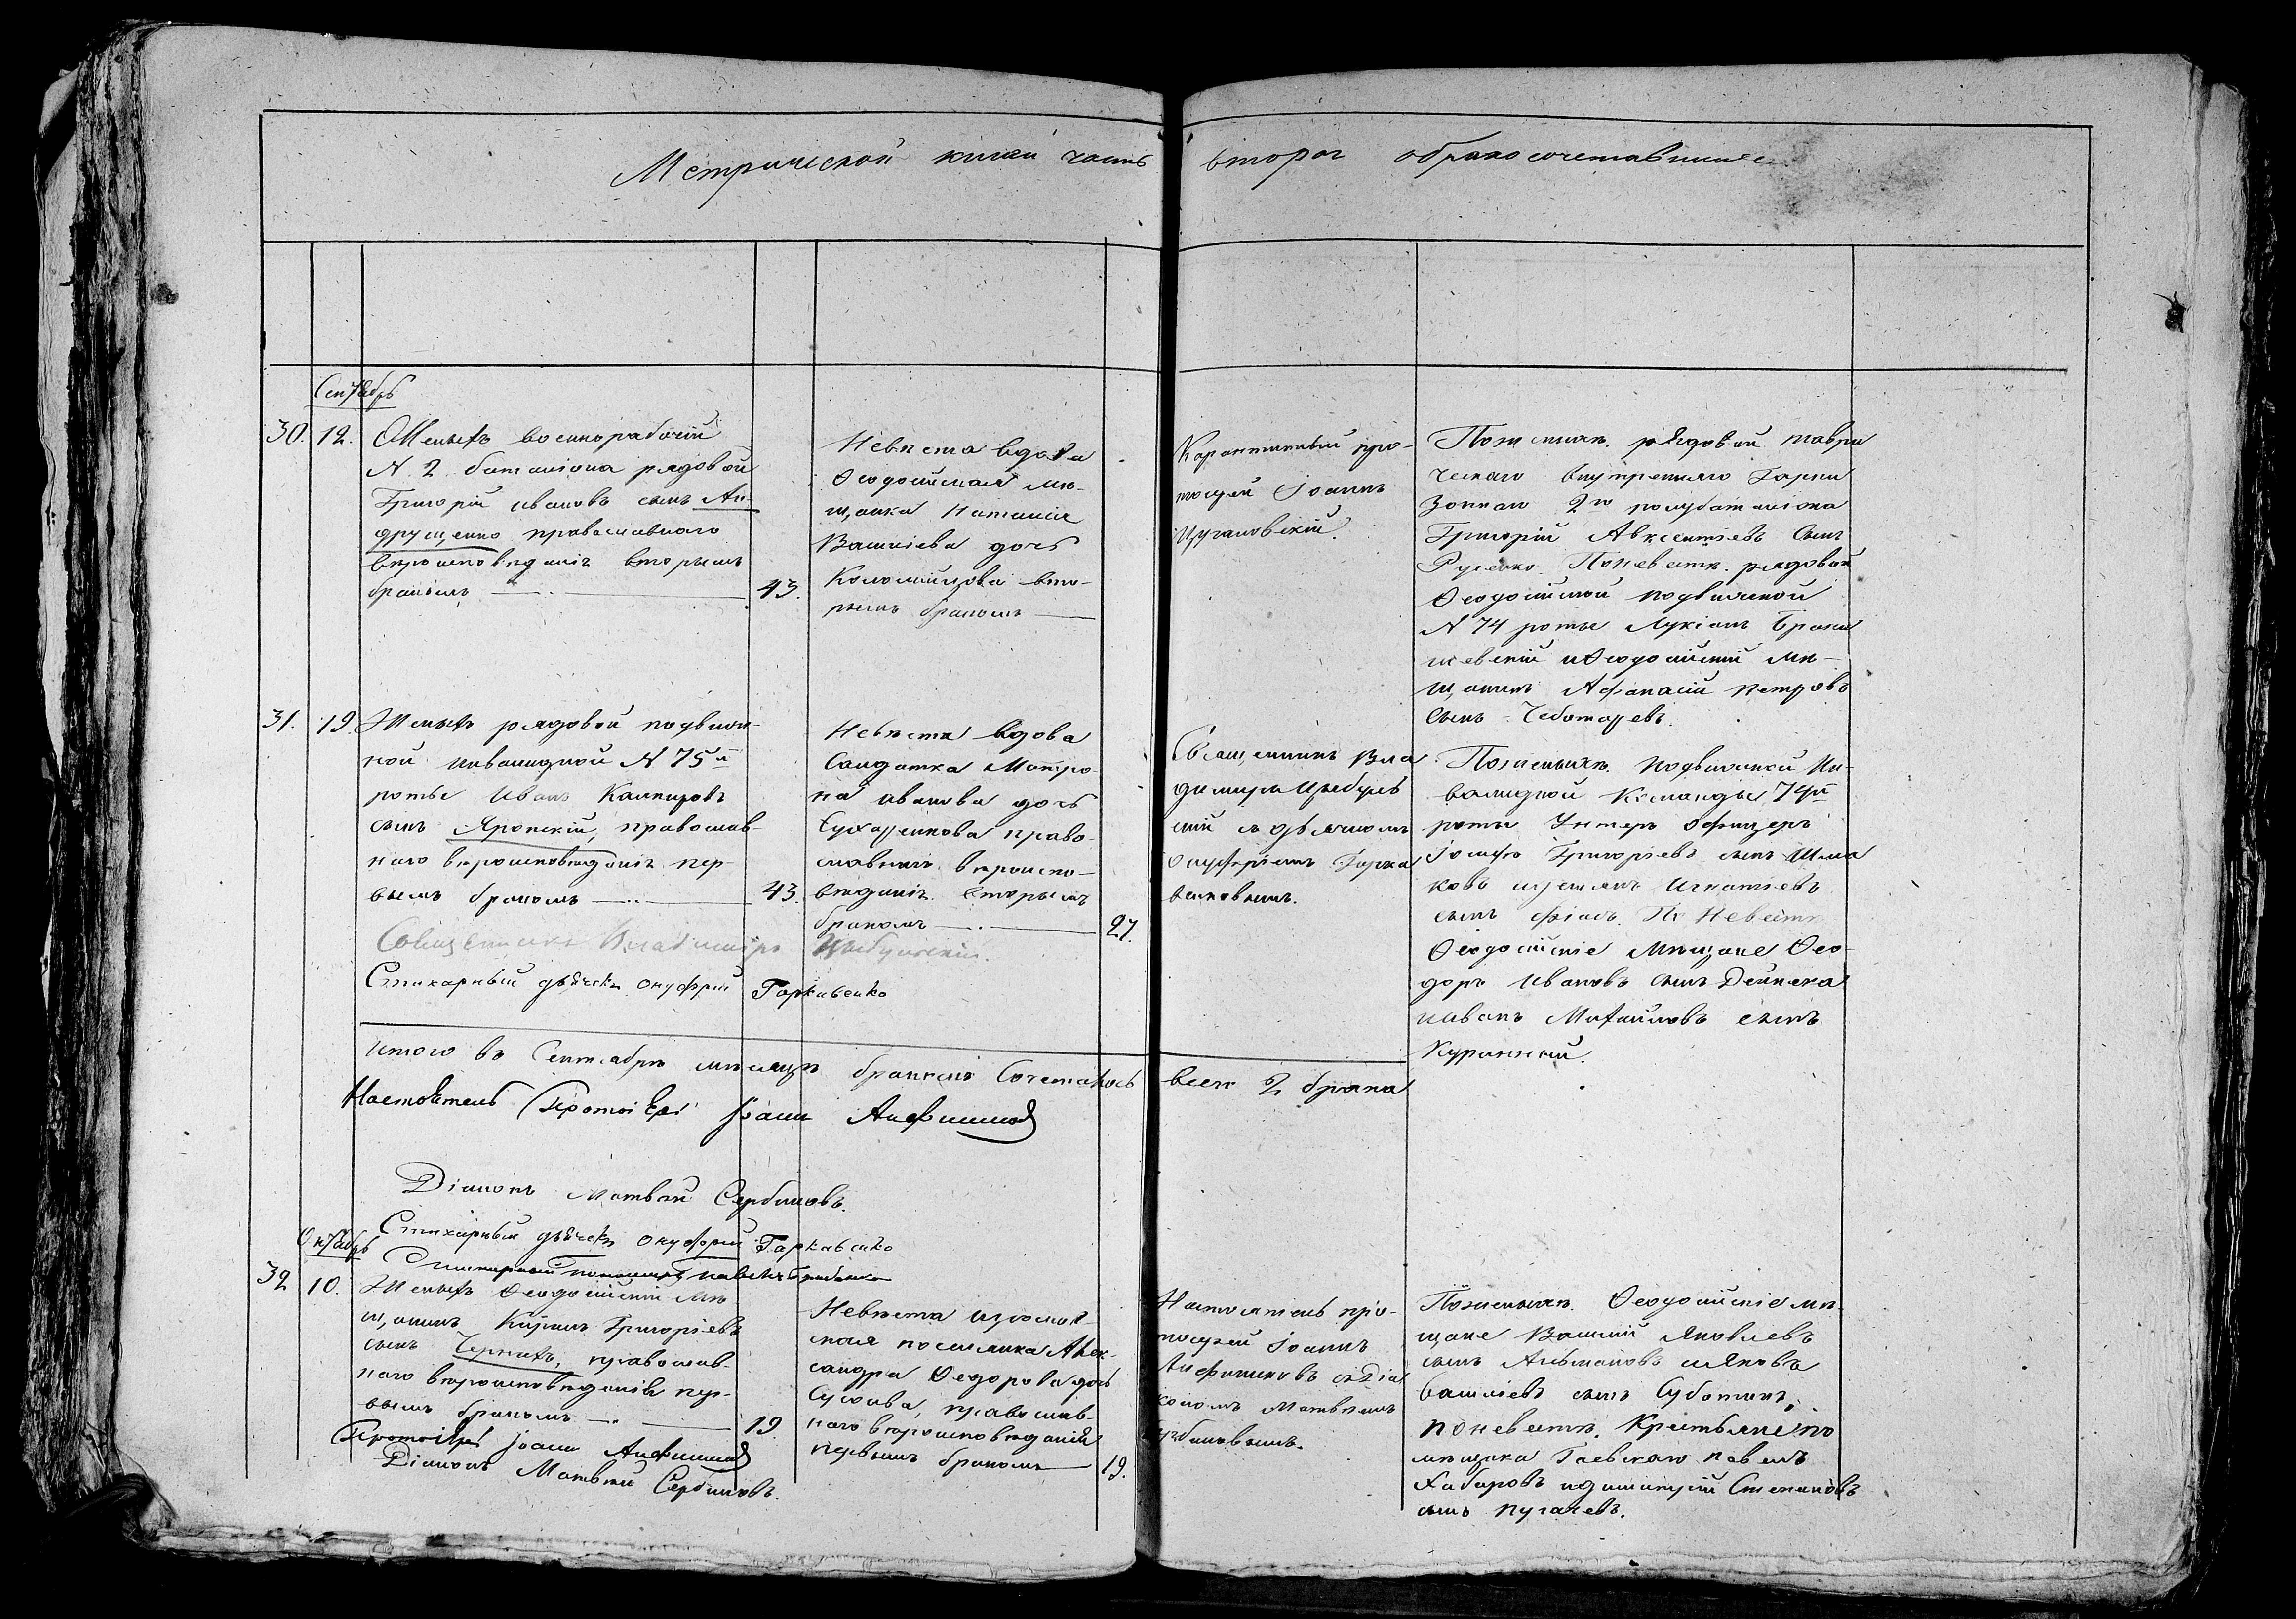 Метрической книги часть вторая обракосочетавшихся
Сентябрь
30. 12. Женихъ военнорабочій
N 2 баталіона рядовой
Григорій Ивановъ сынъ Ан-
друщенко православнаго
вѣроисповѣданія вторымъ
бракомъ 43.
Невѣста вдова
Ѳеодосійская мѣ-
щанка Наталія
Васильева дочь
Коломійцова вто-
рымъ бракомъ
Карантинный про-
тоіерей Іоаннъ
Цугановскій.
По женихѣ рядовой таври
ческаго внутренняго Гарни
зоннаго 2го полубаталіона
Григорій Авксентіевъ сынъ
Руденко. По невѣстѣ рядовой
Ѳеодосійской подвижной
N 74 роты Лукіанъ
шевскій и Ѳеодосійскій мѣ-
щанинъ Афанасій Петровъ
сынъ Чеботаревъ.
31. 19. Женихъ рядовой подвиж-
ной инвалидной N 75й
роты Иванъ Каспировъ
сынъ Яронскій, православ-
наго вѣроисповѣданія пер-
вымъ бракомъ 43.
Невѣста вдова
Салдатка Матро-
на Иванова дочь
Сухаренкова право-
славнаго вѣроиспо-
вѣданія вторымъ
бракомъ 27.
Священникъ Вла
димиръ Цыбуль
скій съ дьячкомъ
Онуфріемъ Горка
венковымъ.
По женихѣ подвижной Ин-
валидной команды 74й
роты Унтеръ офицеръ
Іосифъ Григорьевъ сынъ Шма
ковъ Игнатьевъ
сынъ По Невѣстѣ
Ѳеодосійскіе Мѣщане Ѳео-
доръ Ивановъ сынъ Дейнека
и Иванъ Михайловъ сынъ
Куринный.
Священникъ Владимиръ Цыбульскій.
Стихарный дьячекъ Онуфрій Горкавенко
Итого въ Сентябрѣ мѣсяцѣ бракомъ Сочеталось всех 2 брака
Настоятель Протоіерей Іоаннъ Анфимовъ
Діаконъ Матвѣй Сербиновъ.
Стихарный дьячекъ Онуфрій Горкавенко
Стихарный пономарь Павелъ
Октябрь
32 10. Женихъ Ѳеодосійскій мѣ
щанинъ Григорьевъ
сынъ Чернихъ, православ-
наго вѣроисповѣданія пер-
вымъ бракомъ 19.
Невѣста
ская поселянка Алек-
сандра Ѳедорова дочь
православ-
наго вѣроисповѣданія
первымъ бракомъ 19.
Настоятель про-
тоіерей Іоаннъ
Анфимовъ съ Діа
кономъ Матвѣемъ
Сербиновымъ.
По женихѣ Ѳеодосійскіе мѣ-
щане Василій Яковлевъ
сынъ и Яковъ
Васильевъ сынъ Суботинъ,
по невѣстѣ. Крестьяне по
мѣщика Гаевскаго Павелъ
Хабаровъ и Димитрій Степановъ
сынъ Пугачевъ.
Протоіерей Іоаннъ Анфимовъ
Діаконъ Матвѣй Сербиновъ.